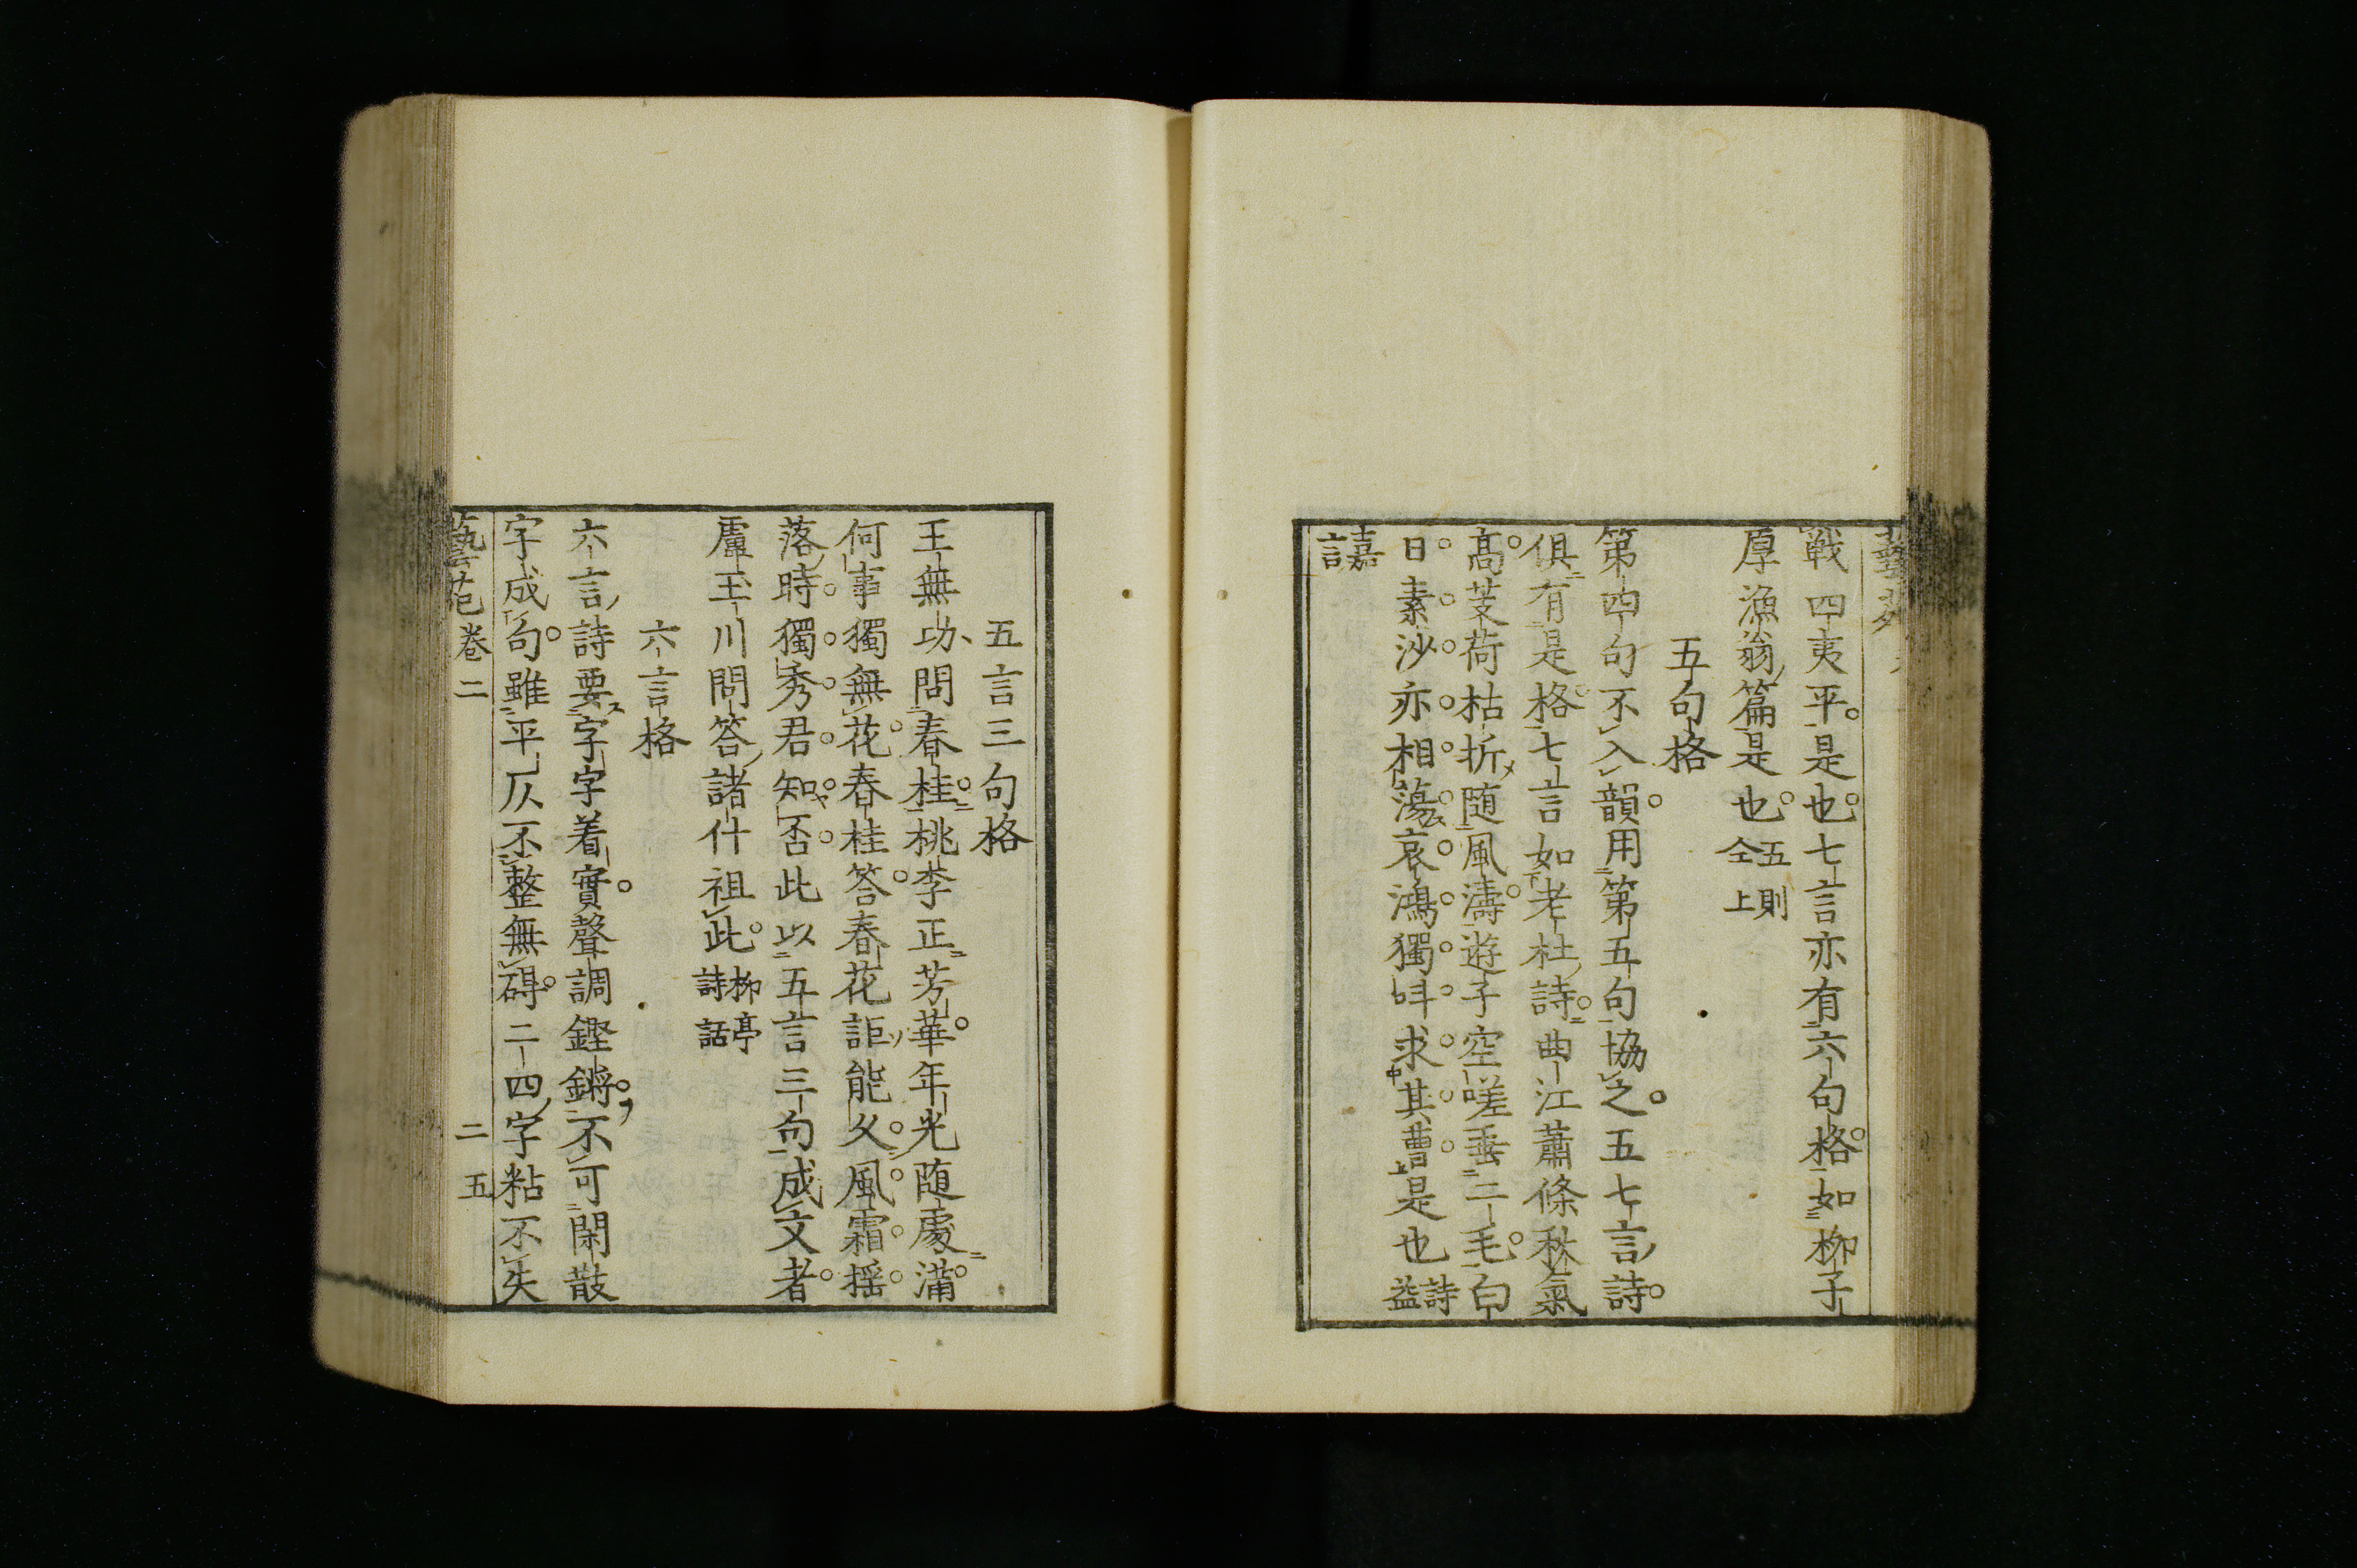 戦四夷平是也七言亦有六句格如柳子
厚漁翁篇是也五則仝上
五句格
第四句不入韻用第五句協之五七言詩
俱有是格七言如老杜詩曲江蕭條秋氣
高芰荷枯折随風濤遊子空嗟垂二毛白
日素沙亦相蕩哀鴻獨叫求其曹是也詩益
嘉言
五言三句格
王無功問春桂桃李正芳華年光随處滿
何事獨無花春桂答春花詎能久風霜揺
落時獨秀君知否此以五言三句成文者
盧玉川問答諸什祖此柳亭詩話
六言格
六言詩要字字着實聲調鏗鏘不可閑散
字成句雖平仄不整無碍二四字粘不失
藝苑卷二 二五